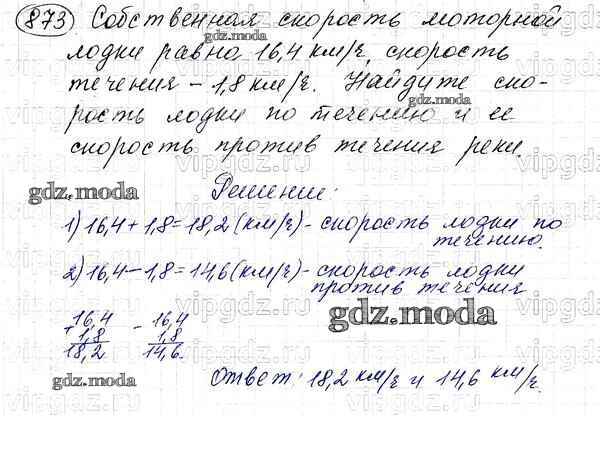 873 Собственная скорость моторной
лодки равна 16,4 км/ч, скорость
течения – 1,8 км/ч. Найдите ско-
рость лодки по течению и ее
скорость против течения реки
Решение:
1) 16,4 + 1,8 = 18,2 (км/ч) - скорость лодки по
течению.
2) 16,4 – 1,8 = 14,6 (км/ч) - скорость лодки
против течения
+ 16,4 - 16,4
1,8 1,8
18,2 14,6
Ответ: 18,2 км/ч и 14,6 км/ч.
gdz.moda
gdz.moda
gdz.moda
gdz.moda
gdz.moda
vipgdz.ru
vipgdz.ru
vipgdz.ru